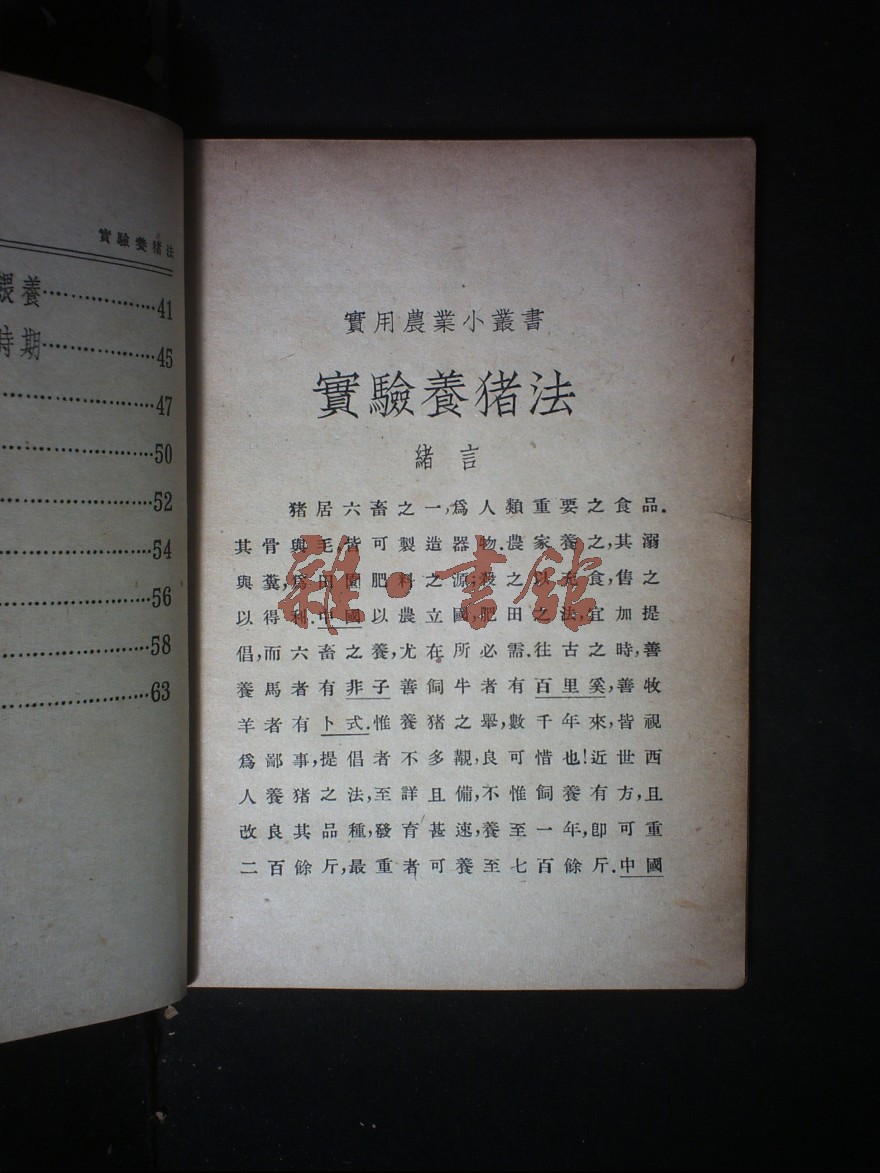 實驗養猪法
餵養 41
時期 45
47
50
52
54
56
58
63
實用農業小叢書
實驗養猪法
緒言
猪居六畜之一,爲人類重要之食品.
其骨與毛,皆可製造器物.農家養之,其溺
與糞,爲田園肥料之源;殺之以充食,售之
以得利.中國以農立國,肥田之法,宜加提
倡,而六畜之養,尤在所必需.往古之時,善
養馬者有非子善飼牛者有百里奚,善牧
羊者有卜式.惟養猪之舉,數千年來,皆視
爲鄙事,提倡者不多覯,良可惜也!近世西
人養猪之法,至詳且備,不惟飼養有方,且
改良其品種,發育甚速,養至一年,卽可重
二百餘斤,最重者可養至七百餘斤.中國
雜·書館